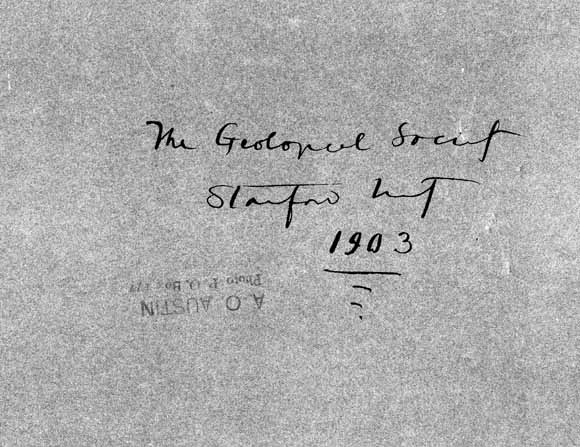 The Geological Society
Stanford Univ
1903
A. O. AUSTIN
Photo P. O. Box